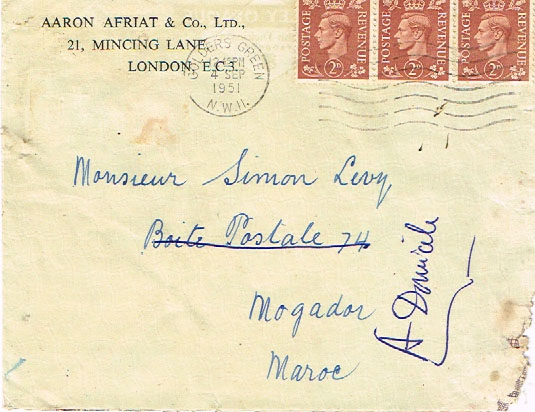 AARON AFRIAT & Co., LTD.,
21, MINCING LANE,
LONDON, E.C.3.
GOLDERS GREEN
4 SEP
1951
N.W.11.
POSTAGE REVENUE
2D
POSTAGE REVENUE
2D
POSTAGE REVENUE
2D
Monsieur Simon Levy
Boite Postale 74
Mogador
Maroc
A Domicile